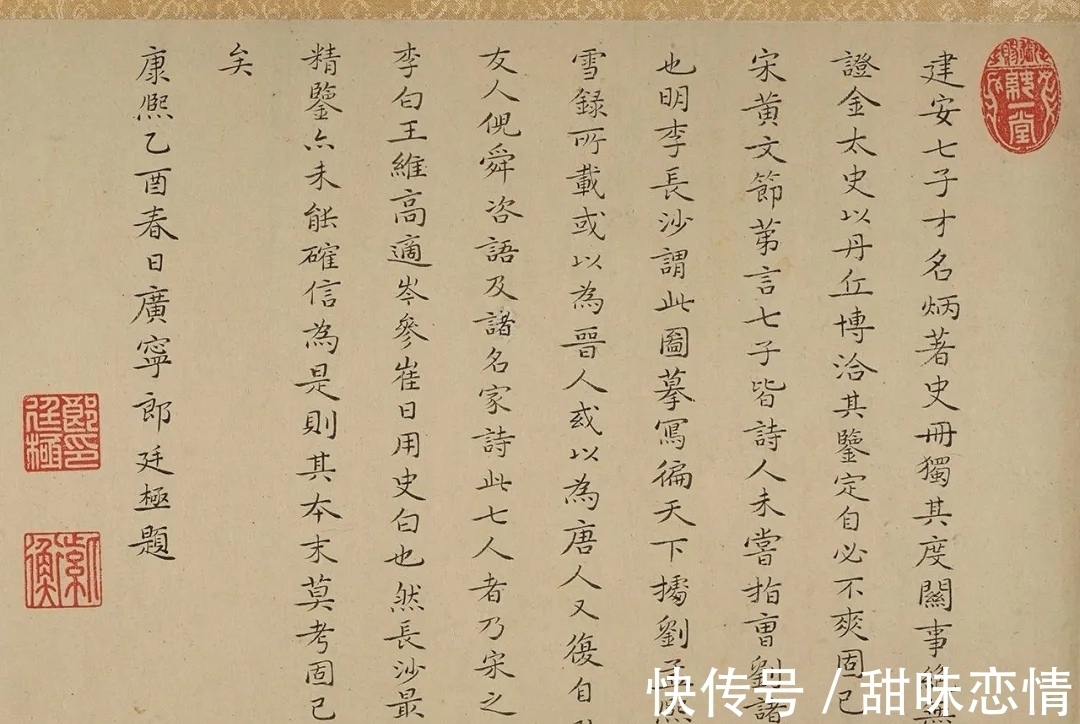 建安七子才名炳著史冊獨其度關事絶無
證金太史以丹丘博洽其鑒定自必不爽固已
宋黃文節苐言七子皆詩人未嘗指曹劉諸
也明李長沙謂此圖摹寫徧天下攜劉孟熙
雪録所載或以為晉人或以為唐人又復自
友人倪舜咨語及諸名家詩此七人者乃宋之
李白王維高適岑參崔日用史白也然長沙最
精鑒亦未能確信為是則其本末莫考固已
矣
康熙乙酉春日廣寧郎廷極題
郎印廷極
紫衡
快传号/甜味恋情